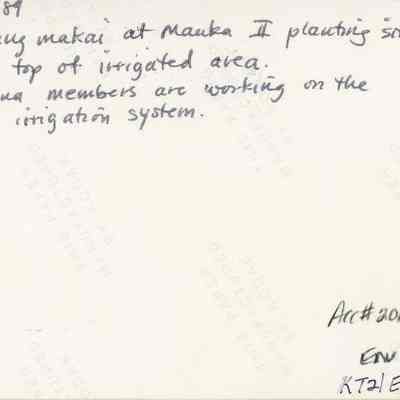 89
ng makai at Mauka II planting si
top of irrigated area.
na members are working on the
irrigation system.
Acc# 20
Env
KT2/E